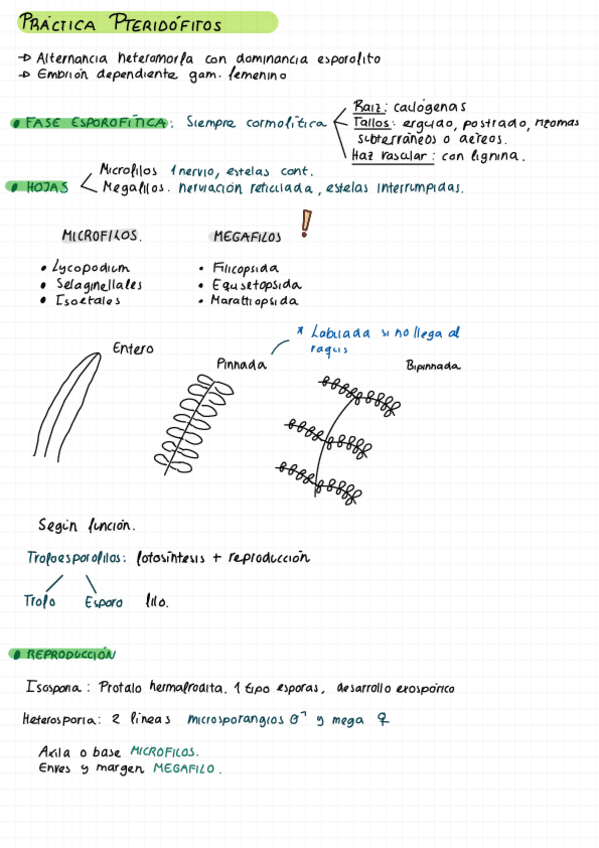 PRÁCTICA PTERIDÓFITOS
→ Alternancia heteromorfa con dominancia esporofito
→ Embrión dependiente gam. femenino
• FASE ESPOROFÍTICA: Siempre cormofítica
Raíz: caulógenas
Tallos: erguido, postrado, rizomas
subterráneos o aéreos.
Haz vascular: con lignina.
• HOJAS
Microfilos 1 nervio, estelas cont.
Megafilos. nerviación reticulada, estelas interrumpidas.
MICROFILOS.
• Lycopodium
• Selaginellales
• Isoetales
MEGAFILOS !
• Filicopsida
• Equsetopsida
• Marattiopsida
Entero
Pinnada
* Lobulada si no llega al
raquis
Bipinnada
Según función.
Trofoesporofilos: fotosíntesis + reproducción
Trofo Esporo filo.
• REPRODUCCIÓN
Isosporia: Protalo hermafrodita. 1 tipo esporas, desarrollo exospórico
Heterosporia: 2 líneas microsporangios ♂ y mega ♀
Axila o base MICROFILOS.
Envés y margen MEGAFILO.